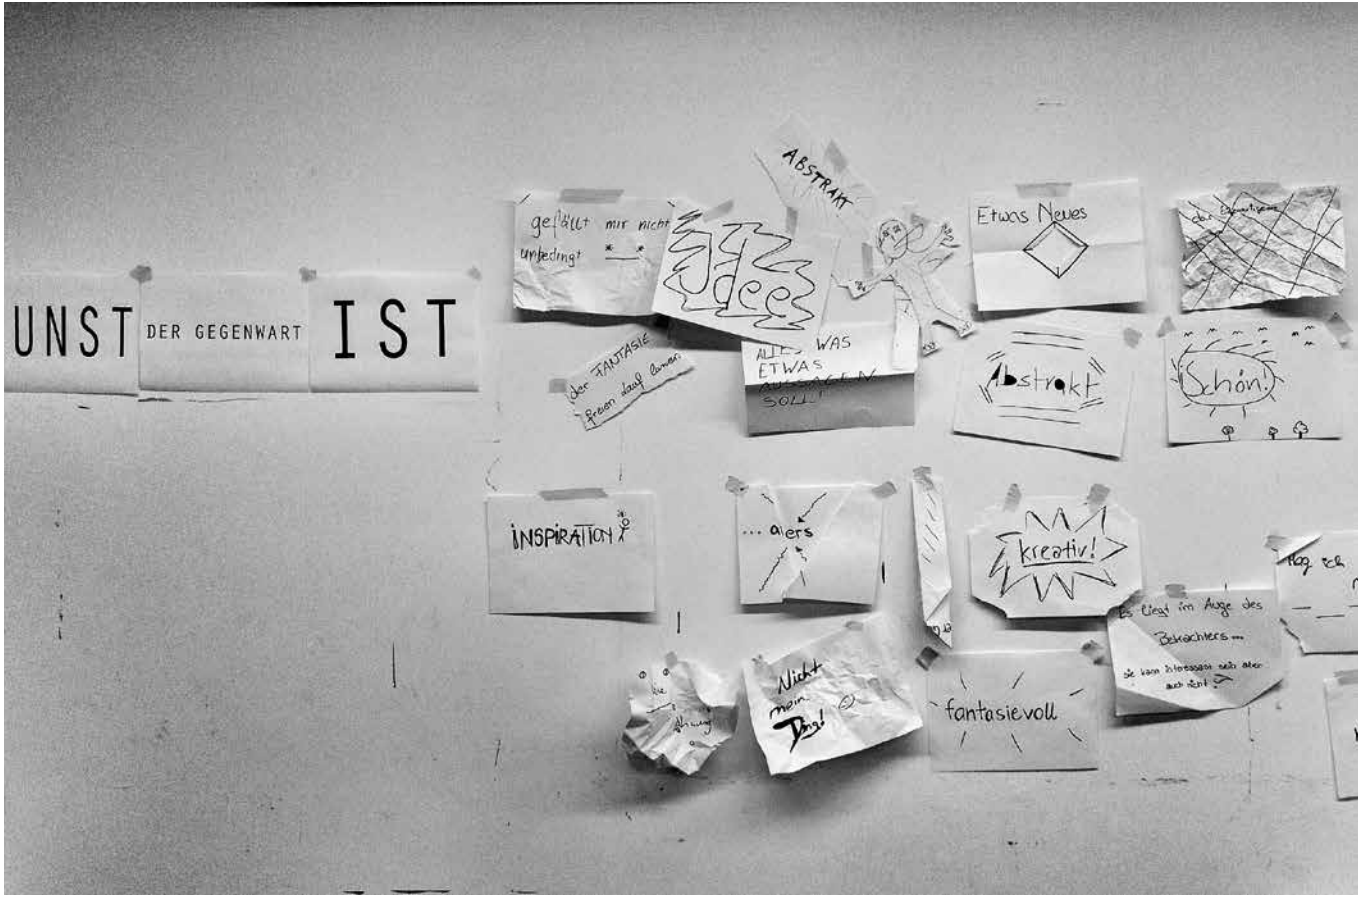 UNST
DER GEGENWART
IST
gefällt mir nicht
unbedingt
Idee
ABSTRAKT
Etwas Neues
der FANTASIE
freien lauf lassen
ALLES WAS
ETWAS
AUSSAGEN
SOLL!
Abstrakt
Schön!
INSPIRATION
... aters
kreativ!
Es liegt im Auge des
Betrachters...
sie kann interessant sein aber
auch nicht
Mag ich
Nicht
mein
Ding!
fantasievoll